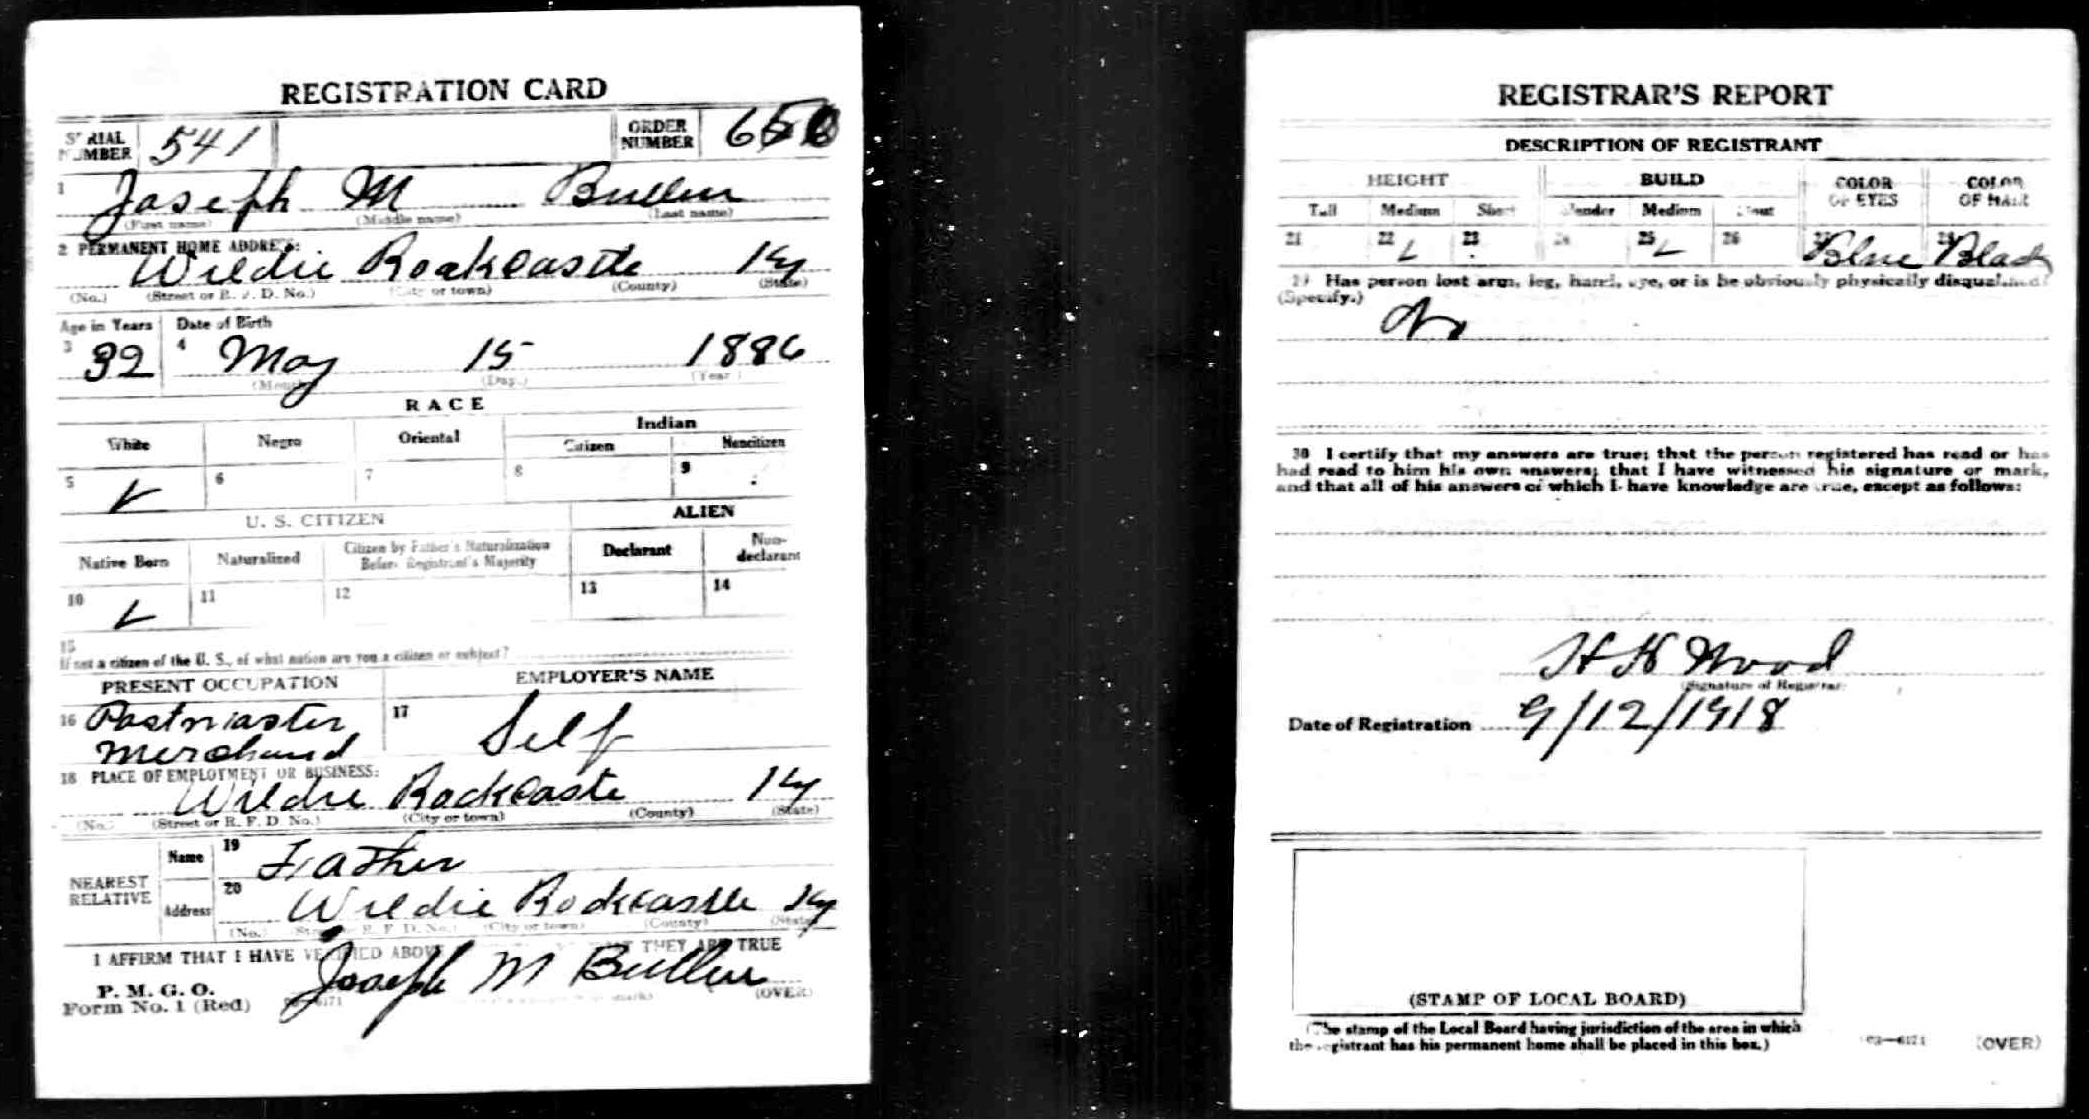 REGISTRATION CARD
SERIAL NUMBER 541 ORDER NUMBER
1 Joseph M Bullen
(First name) (Middle name) (Last name)
2 PERMANENT HOME ADDRESS:
Wildie Rockcastle Ky
(No.) (Street or R. F. D. No.) (City or town) (County) (State)
Age in Years Date of Birth
3 32 4 May 15 1886
(Month) (Day.) (Year)
RACE
White Negro Oriental Indian
Citizen Noncitizen
5 6 7 8 9
U. S. CITIZEN ALIEN
Native Born Naturalized Citizen by Father's Naturalization Before Registrant's Majority Declarant Non-declarant
10 11 12 13 14
15
If not a citizen of the U. S., of what nation are you a citizen or subject?
PRESENT OCCUPATION EMPLOYER'S NAME
16 Postmaster 17 Self
Merchand
18 PLACE OF EMPLOYMENT OR BUSINESS:
Wildie Rockcaste Ky
(No.) (Street or R. F. D. No.) (City or town) (County) (State)
NEAREST RELATIVE Name 19 Father
Address 20 Wildie Rockcastle Ky
(No.) (Street or R. F. D. No.) (City or town) (County) (State)
I AFFIRM THAT I HAVE VERIFIED ABOVE THAT THEY ARE TRUE
P. M. G. O.
Form No. 1 (Red) Joseph M Bullen (OVER)
REGISTRAR'S REPORT
DESCRIPTION OF REGISTRANT
HEIGHT BUILD COLOR OF EYES COLOR OF HAIR
Tall Medium Short Slender Medium Stout
21 22 23 24 25 26 27 Blue 28 Black
29 Has person lost arm, leg, hand, eye, or is he obviously physically disqualified?
(Specify.) No
30 I certify that my answers are true; that the person registered has read or has
had read to him his own answers; that I have witnessed his signature or mark,
and that all of his answers of which I have knowledge are true, except as follows:
H H Wood
(Signature of Registrar)
Date of Registration 9/12/1918
(STAMP OF LOCAL BOARD)
(The stamp of the Local Board having jurisdiction of the area in which
the registrant has his permanent home shall be placed in this box.)
03—6171 (OVER)